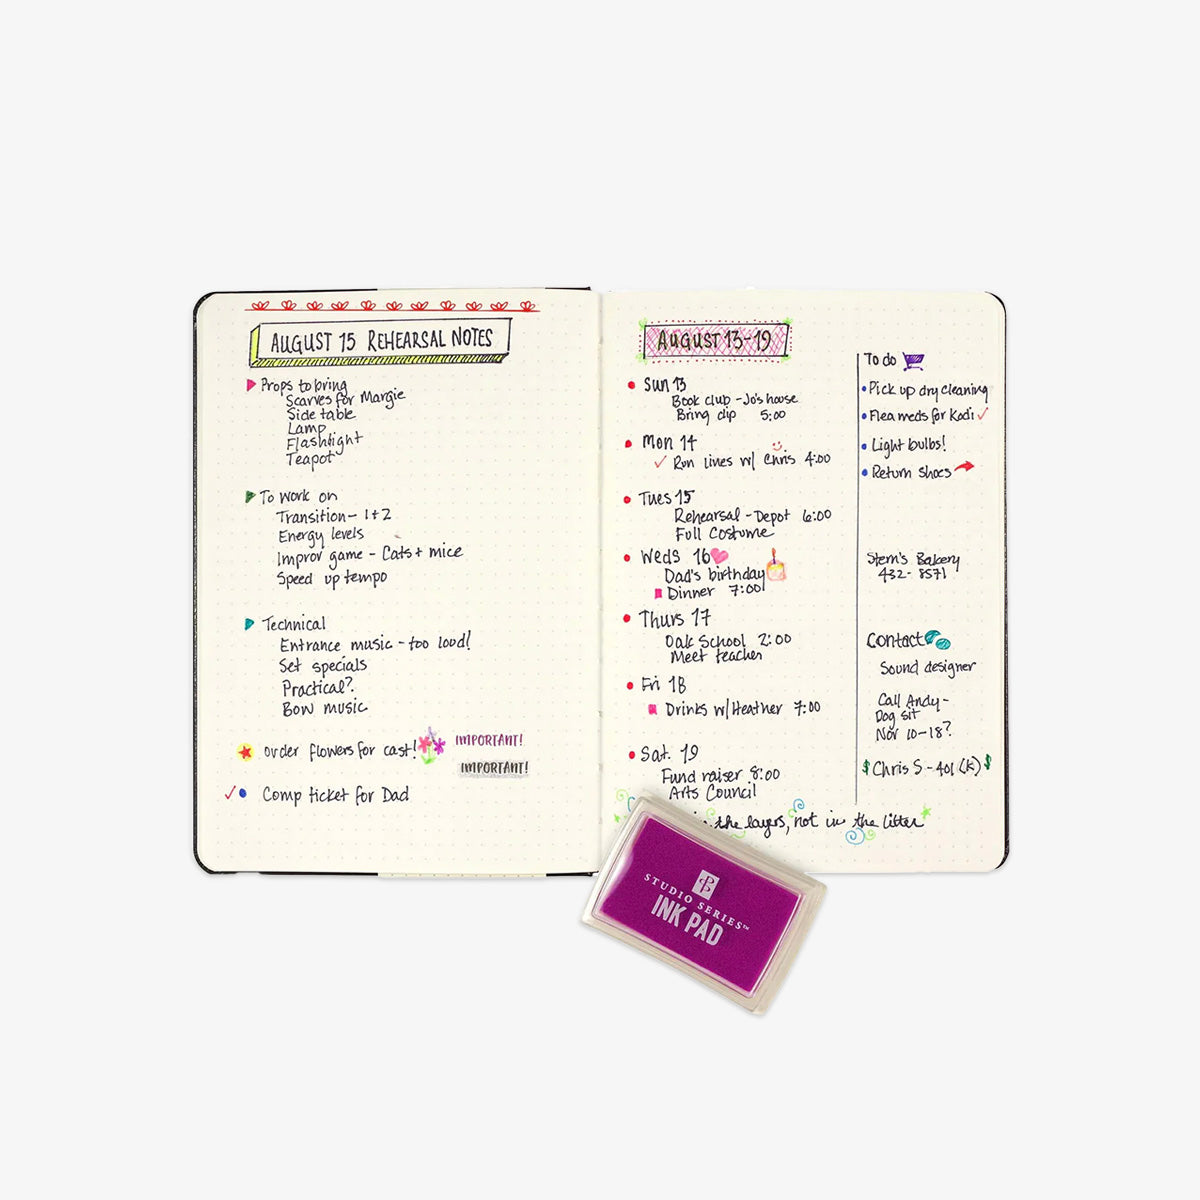 AUGUST 15 REHEARSAL NOTES
Props to bring
Scarves for Margie
Side table
Lamp
Flashlight
Teapot
To work on
Transition - 1+2
Energy levels
Improv game - Cats + mice
Speed up tempo
Technical
Entrance music - too loud!
Set specials
Practical?
Bow music
order flowers for cast!
IMPORTANT!
IMPORTANT!
Comp ticket for Dad
AUGUST 13-19
Sun 13
Book club - Jo's house
Bring dip 5:00
Mon 14
Run lines w/ Chris 4:00
Tues 15
Rehearsal - Depot 6:00
Full Costume
Weds 16
Dad's birthday
Dinner 7:00!
Thurs 17
Oak School 2:00
Meet teacher
Fri 18
Drinks w/Heather 7:00
Sat. 19
Fund raiser 8:00
Arts Council
the layers, not in the litter
To do
Pick up dry cleaning
Flea meds for Kodi
Light bulbs!
Return shoes
Stern's Bakery
432-8571
Contact
Sound designer
Call Andy -
Dog sit
Nov 10-18?
$ Chris S - 401 (K) $
STUDIO SERIES™
INK PAD